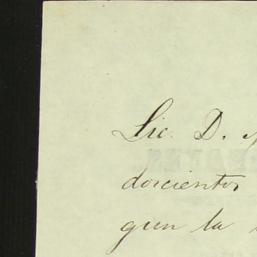 Lic. D.
dorcientos
gun la